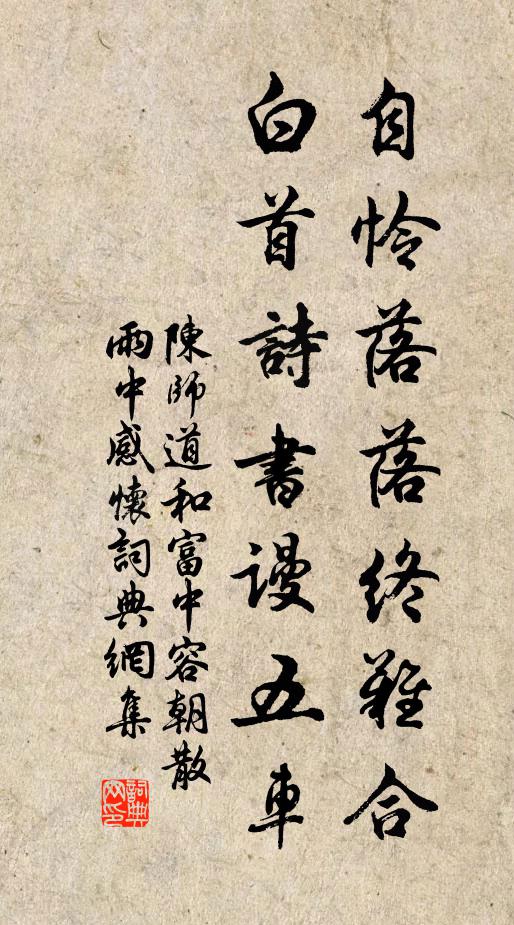 自怜落落终難合
白首詩書謾五車
陳師道和富中容朝散
雨中感懷詞典網集
詞典网印